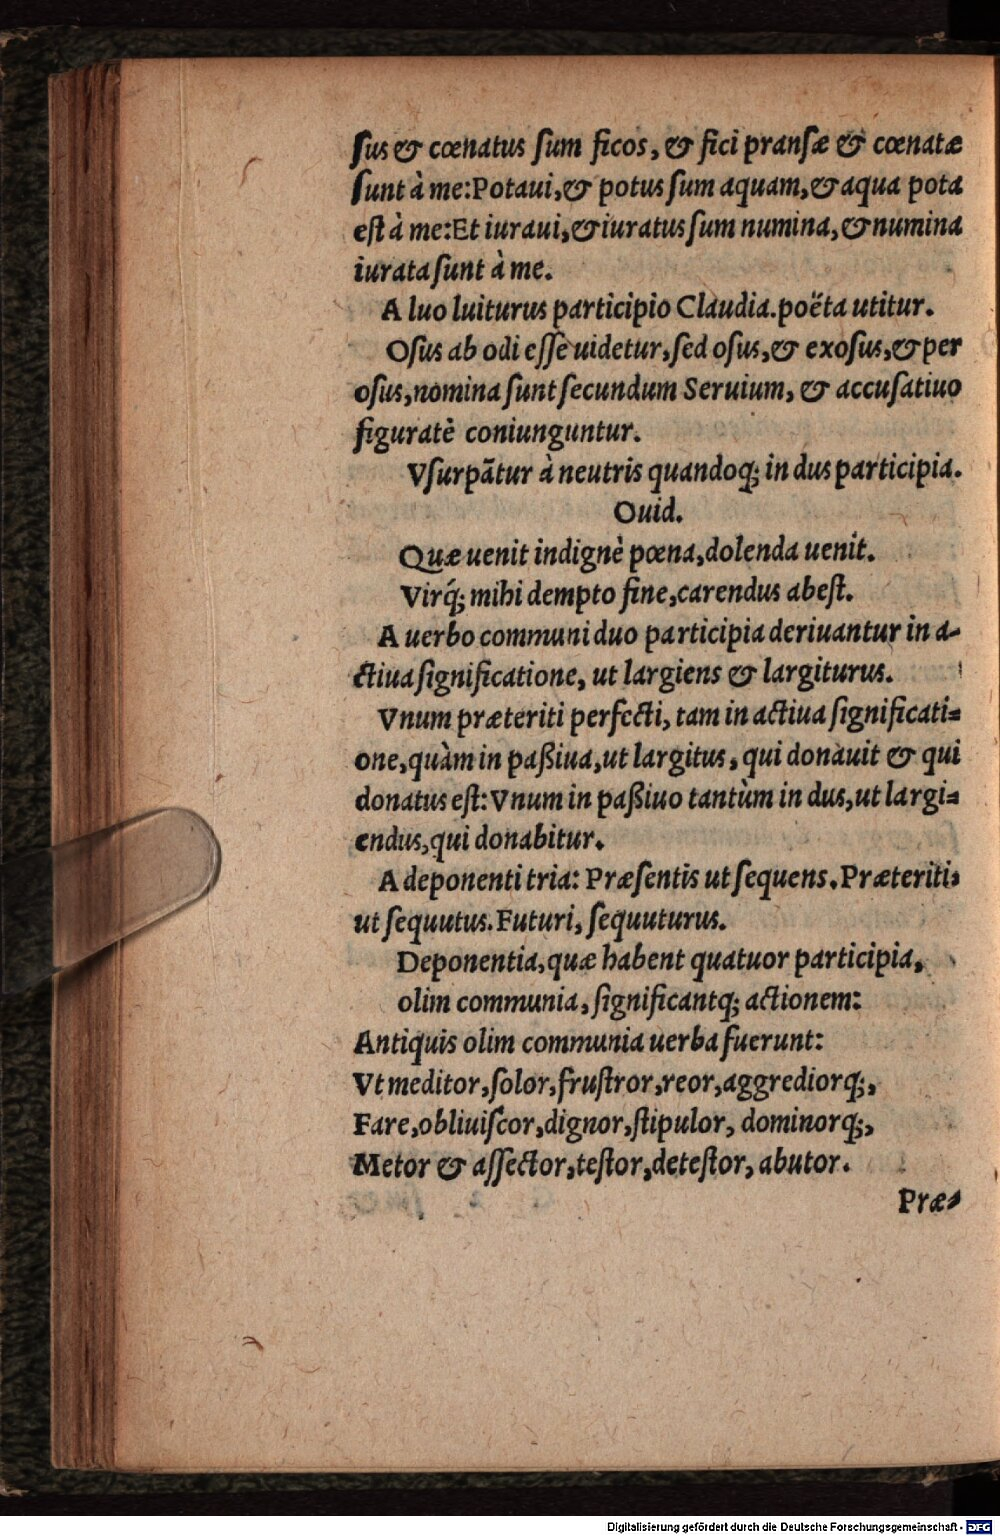 ſus & cœnatus ſum ficos, & fici pranſæ & cœnatæ
ſunt à me: Potaui, & potus ſum aquam, & aqua pota
eſt à me: Et iuraui, & iuratus ſum numina, & numina
iurata ſunt à me.
A luo luiturus participio Claudia. poëta utitur.
Oſus ab odi eſſe uidetur, ſed oſus, & exoſus, & per
oſus, nomina ſunt ſecundum Seruium, & accuſatiuo
figuratè coniunguntur.
Vſurpãtur à neutris quandoq; in dus participia.
Ouid.
Quæ uenit indignè pœna, dolenda uenit.
Virq́; mihi dempto fine, carendus abeſt.
A uerbo communi duo participia deriuantur in a-
ctiua ſignificatione, ut largiens & largiturus.
Vnum præteriti perfecti, tam in actiua ſignificati=
one, quàm in paßiua, ut largitus, qui donauit & qui
donatus eſt: Vnum in paßiuo tantùm in dus, ut largi=
endus, qui donabitur.
A deponenti tria: Præſentis ut ſequens. Præteriti,
ut ſequutus. Futuri, ſequuturus.
Deponentia, quæ habent quatuor participia,
olim communia, ſignificantq; actionem:
Antiquis olim communia uerba fuerunt:
Vt meditor, ſolor, fruſtror, reor, aggrediorq;,
Fare, obliuiſcor, dignor, ſtipulor, dominorq;,
Metor & aſſector, teſtor, deteſtor, abutor.
Præ-
Digitalisierung gefördert durch die Deutsche Forschungsgemeinschaft - DFG